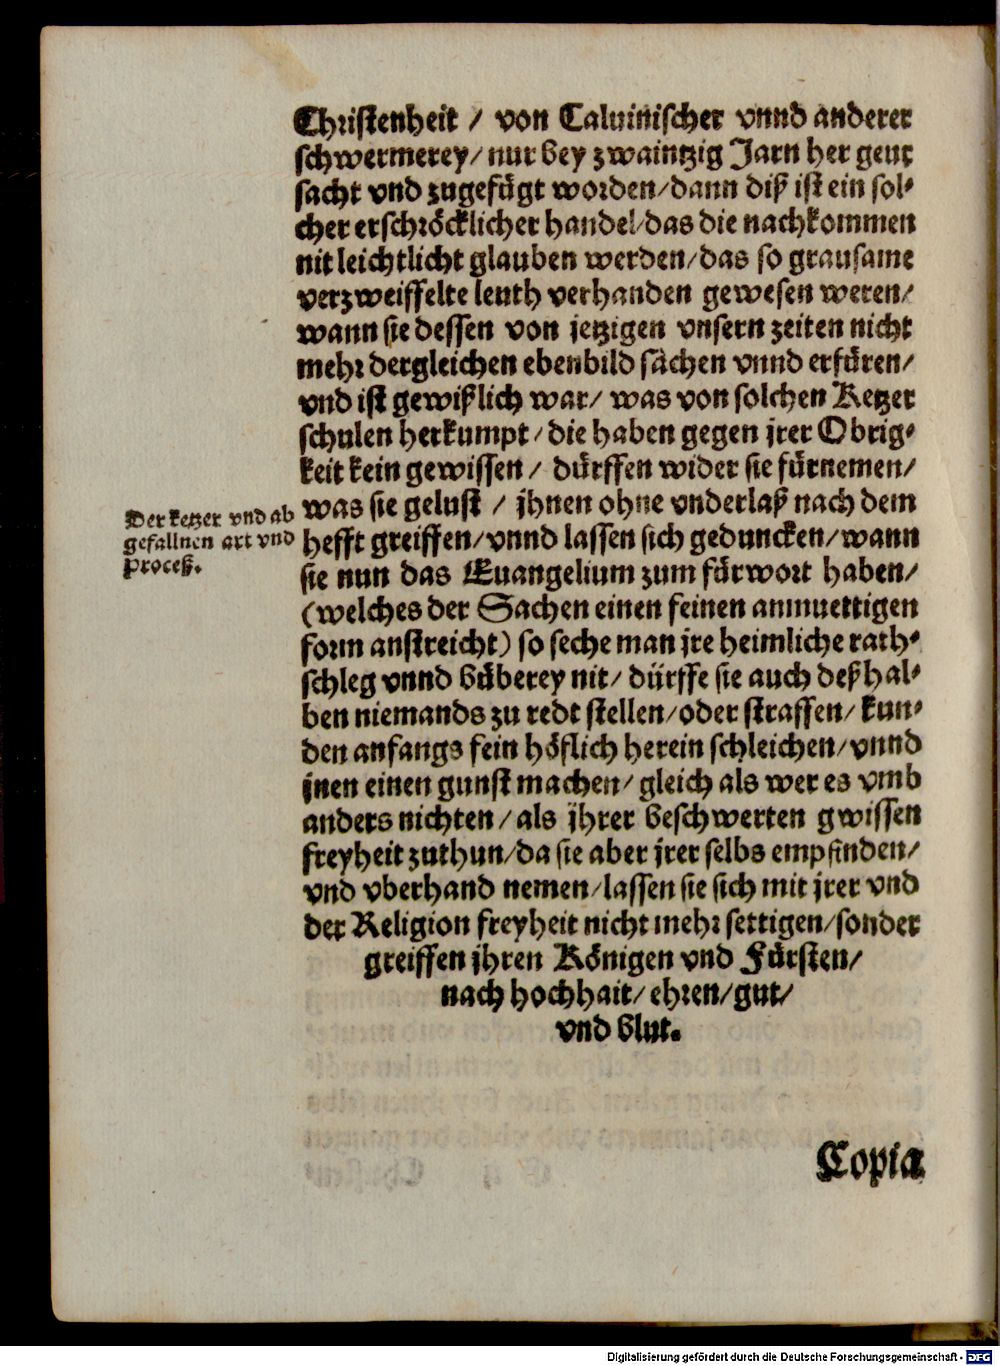 Christenheit / von Caluinischer vnnd anderer
schwermerey / nur bey zwaintzig Jarn her geur
sacht vnd zugefügt worden / dann diß ist ein sol⸗
cher erschröcklicher handel / das die nachkommen
nit leichtlicht glauben werden / das so grausame
verzweiffelte leuth verhanden gewesen weren /
wann sie dessen von jetzigen vnsern zeiten nicht
mehr dergleichen ebenbild sächen vnnd erfüren /
vnd ist gewißlich war / was von solchen Ketzer
schulen herkumpt / die haben gegen jrer Obrig⸗
keit kein gewissen / dürffen wider sie fürnemen /
was sie gelust / jhnen ohne vnderlaß nach dem
hefft greiffen / vnnd lassen sich geduncken / wann
sie nun das Euangelium zum fürwort haben /
(welches der Sachen einen feinen anmuettigen
form anstreicht) so seche man jre heimliche rath⸗
schleg vnnd büberey nit / dürffe sie auch deßhal⸗
ben niemands zu redt stellen / oder straffen / kun⸗
den anfangs fein höflich herein schleichen / vnnd
jnen einen gunst machen / gleich als wer es vmb
anders nichten / als jhrer beschwerten gwissen
freyheit zuthun / da sie aber jrer selbs empfinden /
vnd vberhand nemen / lassen sie sich mit jrer vnd
der Religion freyheit nicht mehr settigen / sonder
greiffen jhren Königen vnd Fürsten /
nach hochhait / ehren / gut /
vnd blut.
Der ketzer vnd ab
gefallnen art vnd
proceß.
Copia
Digitalisierung gefördert durch die Deutsche Forschungsgemeinschaft - DFG